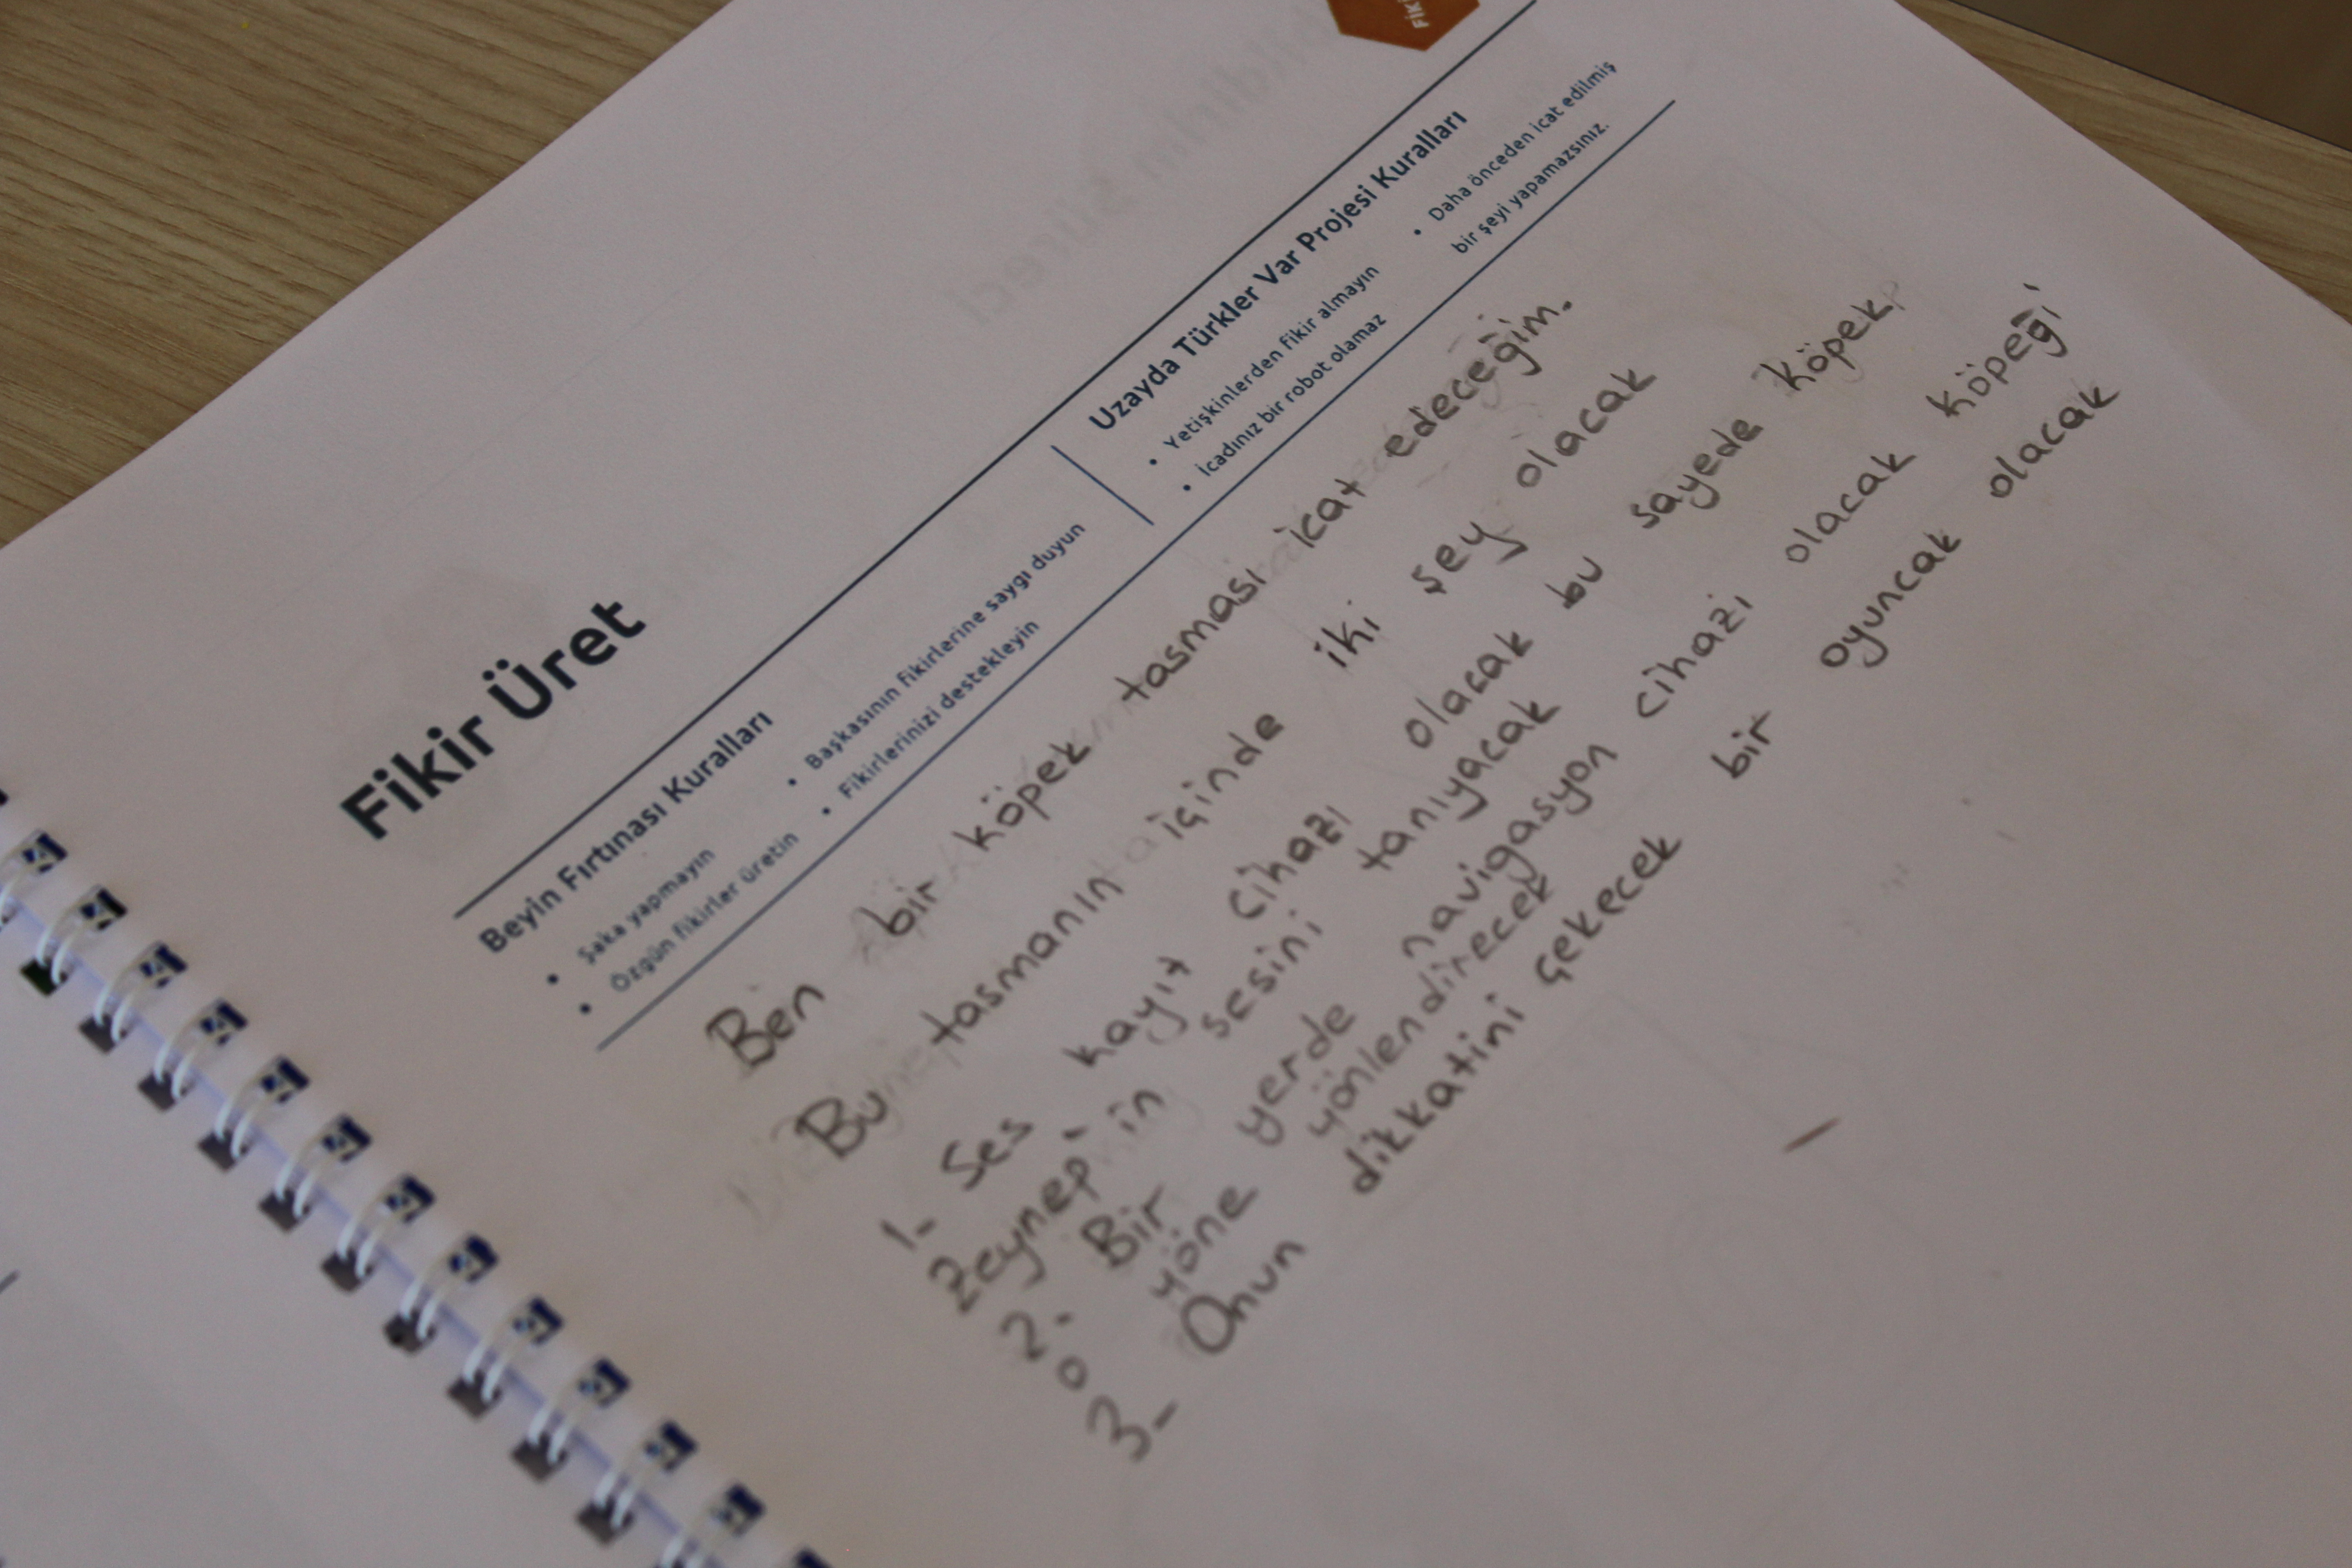 FİKİ
Fikir Üret
Beyin Fırtınası Kuralları
• Şaka yapmayın
• Özgün fikirler üretin
• Başkasının fikirlerine saygı duyun
• Fikirlerinizi destekleyin
Uzayda Türkler Var Projesi Kuralları
• Yetişkinlerden fikir almayın
• İcadınız bir robot olamaz
• Daha önceden icat edilmiş
bir şeyi yapamazsınız.
Ben bir köpek tasması icat edeceğim.
Bu tasmanın içinde iki şey olacak
1- Ses kayıt cihazı olacak bu sayede köpek
Zeynep'in sesini tanıyacak
2- Bir yerde navigasyon cihazı olacak köpeği
o yöne yönlendirecek
3- Onun dikkatini çekecek bir oyuncak olacak